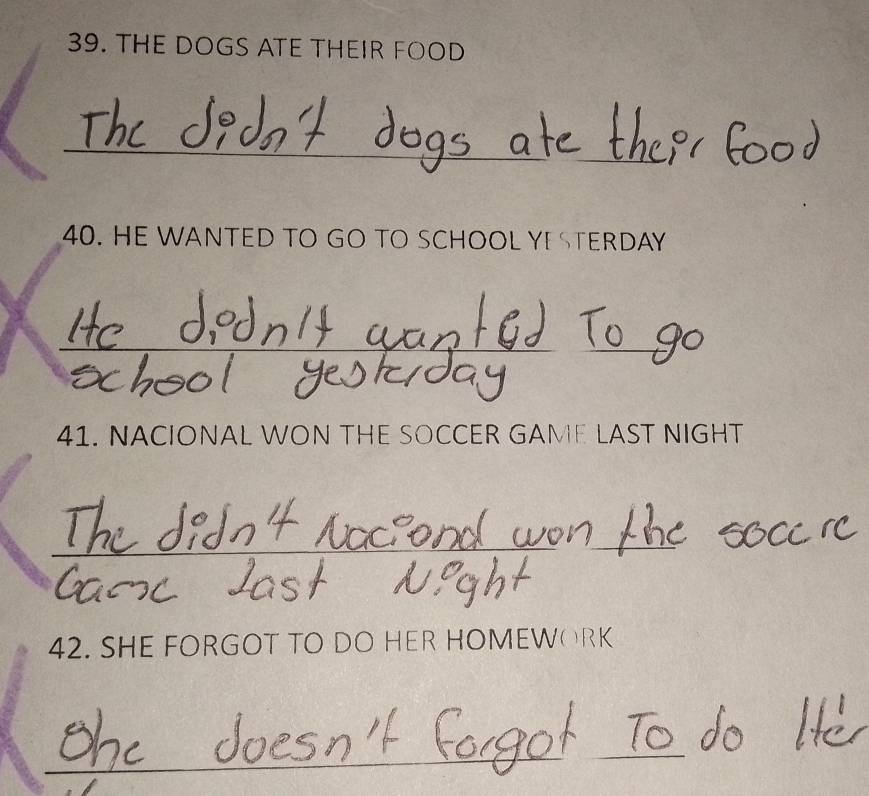 39. THE DOGS ATE THEIR FOOD
The didn't dogs ate their food
40. HE WANTED TO GO TO SCHOOL YESTERDAY
He didn't wanted To go
school yesterday
41. NACIONAL WON THE SOCCER GAME LAST NIGHT
The didn't Naciond won the soccre
Game last Night
42. SHE FORGOT TO DO HER HOMEWORK
She doesn't forgot To do Her